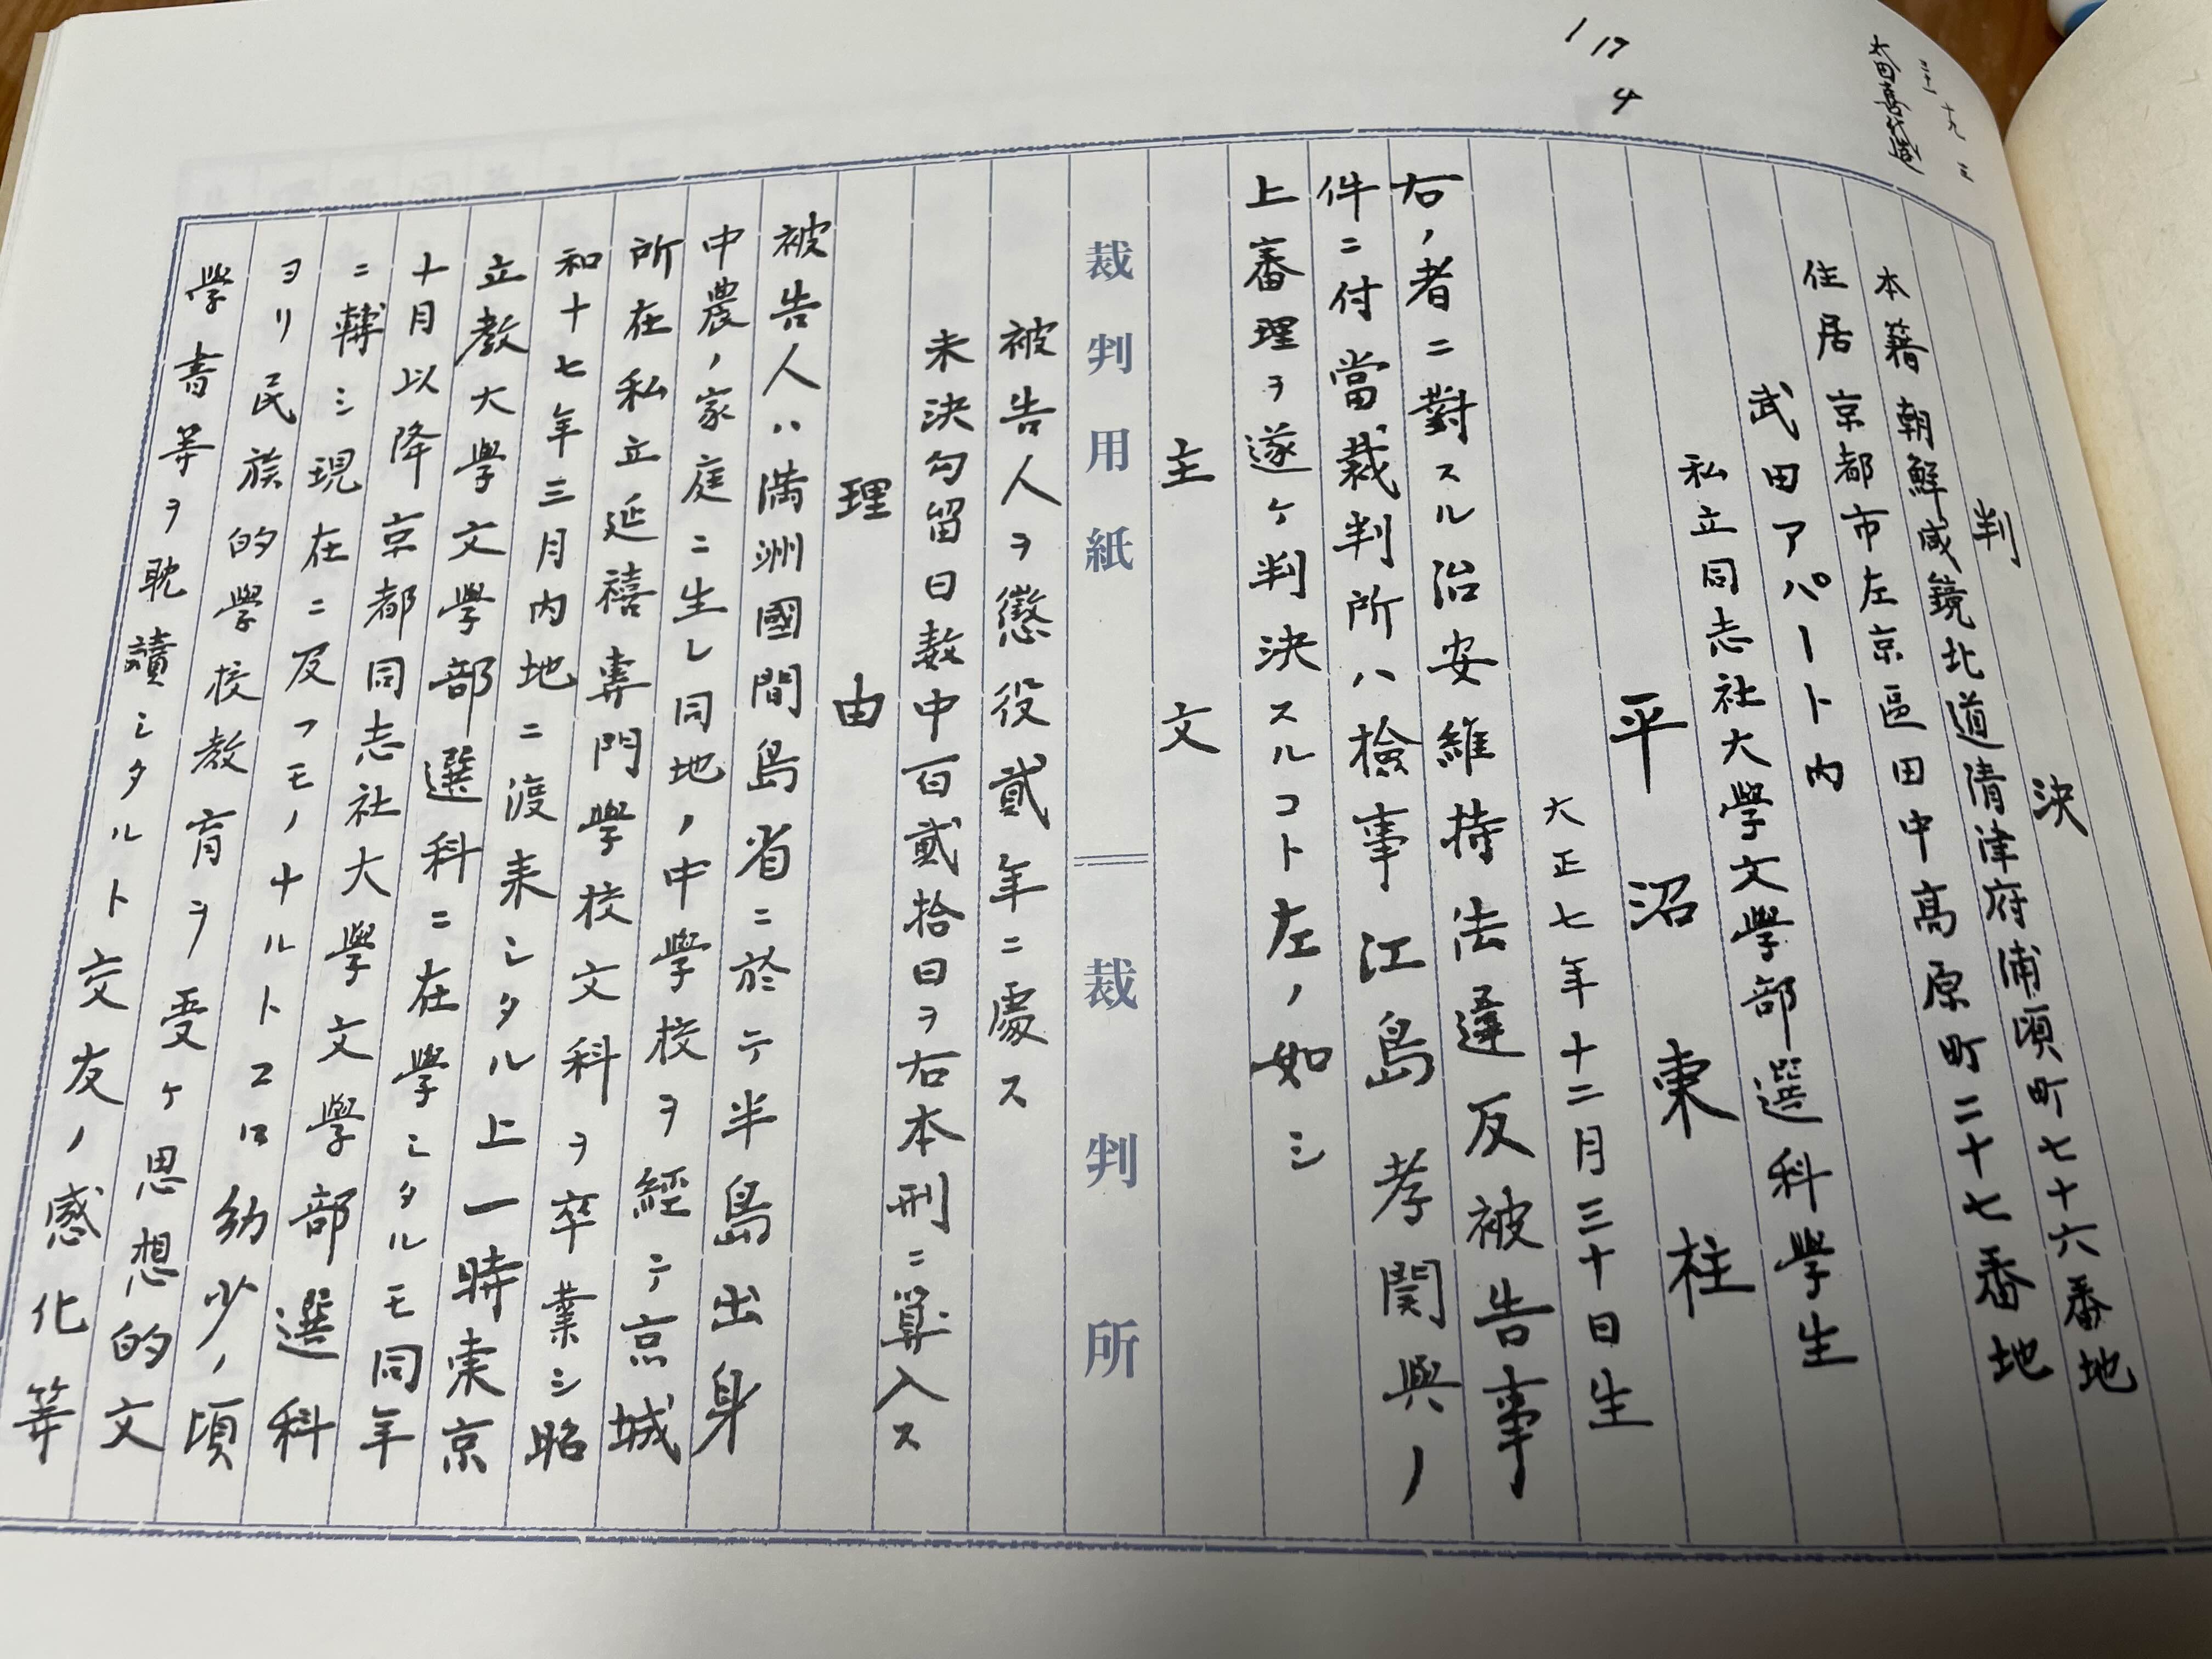 1 17
4
判決
本籍 朝鮮咸鏡北道清津府浦項町七十六番地
住居 京都市左京區田中高原町二十七番地
武田アパート内
私立同志社大學文學部選科學生
平沼東柱
大正七年十二月三十日生
右ノ者ニ對スル治安維持法違反被告事
件ニ付當裁判所ハ檢事江島孝関與ノ
上審理ヲ遂ケ判決スルコト左ノ如シ
主文
裁判用紙 裁判所
被告人ヲ懲役貳年ニ處ス
未決勾留日数中百貳拾日ヲ右本刑ニ算入ス
理由
被告人ハ満洲國間島省ニ於テ半島出身
中農ノ家庭ニ生レ同地ノ中學校ヲ經テ京城
所在私立延禧專門學校文科ヲ卒業シ昭
和十七年三月内地ニ渡来シタル上一時東京
立教大學文學部選科ニ在學シタルモ同年
十月以降京都同志社大學文學部選科
ニ轉シ現在ニ及フモノナルトコロ幼少ノ頃
ヨリ民族的學校教育ヲ受ケ思想的文
學書等ヲ耽讀シタルト交友ノ感化等